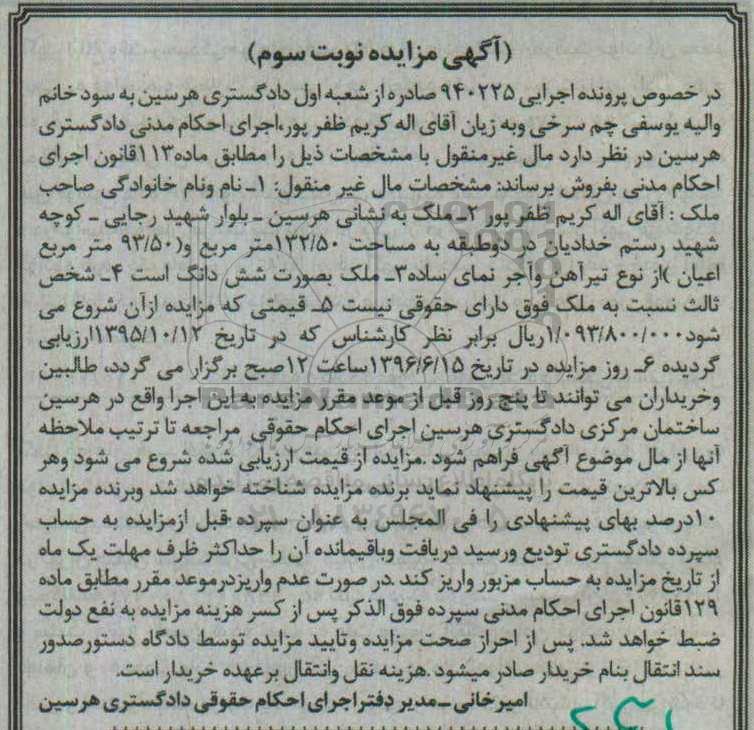 (آگهی مزایده نوبت سوم)
در خصوص پرونده اجرایی ۹۴۰۲۲۵ صادره از شعبه اول دادگستری هرسین به سود خانم
والیه یوسفی چم سرخی وبه زیان آقای اله کریم ظفر پور،اجرای احکام مدنی دادگستری
هرسین در نظر دارد مال غیرمنقول با مشخصات ذیل را مطابق ماده۱۱۳قانون اجرای
احکام مدنی بفروش برساند: مشخصات مال غیر منقول: ۱ـ نام ونام خانوادگی صاحب
ملک : آقای اله کریم ظفر پور ۲ـ ملک به نشانی هرسین ـ بلوار شهید رجایی ـ کوچه
شهید رستم خدادیان در دوطبقه به مساحت ۱۳۲/۵۰متر مربع و(۹۳/۵۰ متر مربع
اعیان )از نوع تیرآهن وآجر نمای ساده۳ـ ملک بصورت شش دانگ است ۴ـ شخص
ثالث نسبت به ملک فوق دارای حقوقی نیست ۵ـ قیمتی که مزایده ازآن شروع می
شود۱/۰۹۳/۸۰۰/۰۰۰ریال برابر نظر کارشناس که در تاریخ ۱۳۹۵/۱۰/۱۲ارزیابی
گردیده ۶ـ روز مزایده در تاریخ ۱۳۹۶/۶/۱۵ساعت ۱۲صبح برگزار می گردد، طالبین
وخریداران می توانند تا پنج روز قبل از موعد مقرر مزایده به این اجرا واقع در هرسین
ساختمان مرکزی دادگستری هرسین اجرای احکام حقوقی مراجعه تا ترتیب ملاحظه
آنها از مال موضوع آگهی فراهم شود .مزایده از قیمت ارزیابی شده شروع می شود وهر
کس بالاترین قیمت را پیشنهاد نماید برنده مزایده شناخته خواهد شد وبرنده مزایده
۱۰درصد بهای پیشنهادی را فی المجلس به عنوان سپرده قبل ازمزایده به حساب
سپرده دادگستری تودیع ورسید دریافت وباقیمانده آن را حداکثر ظرف مهلت یک ماه
از تاریخ مزایده به حساب مزبور واریز کند .در صورت عدم واریزدرموعد مقرر مطابق ماده
۱۲۹قانون اجرای احکام مدنی سپرده فوق الذکر پس از کسر هزینه مزایده به نفع دولت
ضبط خواهد شد. پس از احراز صحت مزایده وتایید مزایده توسط دادگاه دستورصدور
سند انتقال بنام خریدار صادر میشود .هزینه نقل وانتقال برعهده خریدار است.
امیرخانی ـ مدیر دفتراجرای احکام حقوقی دادگستری هرسین